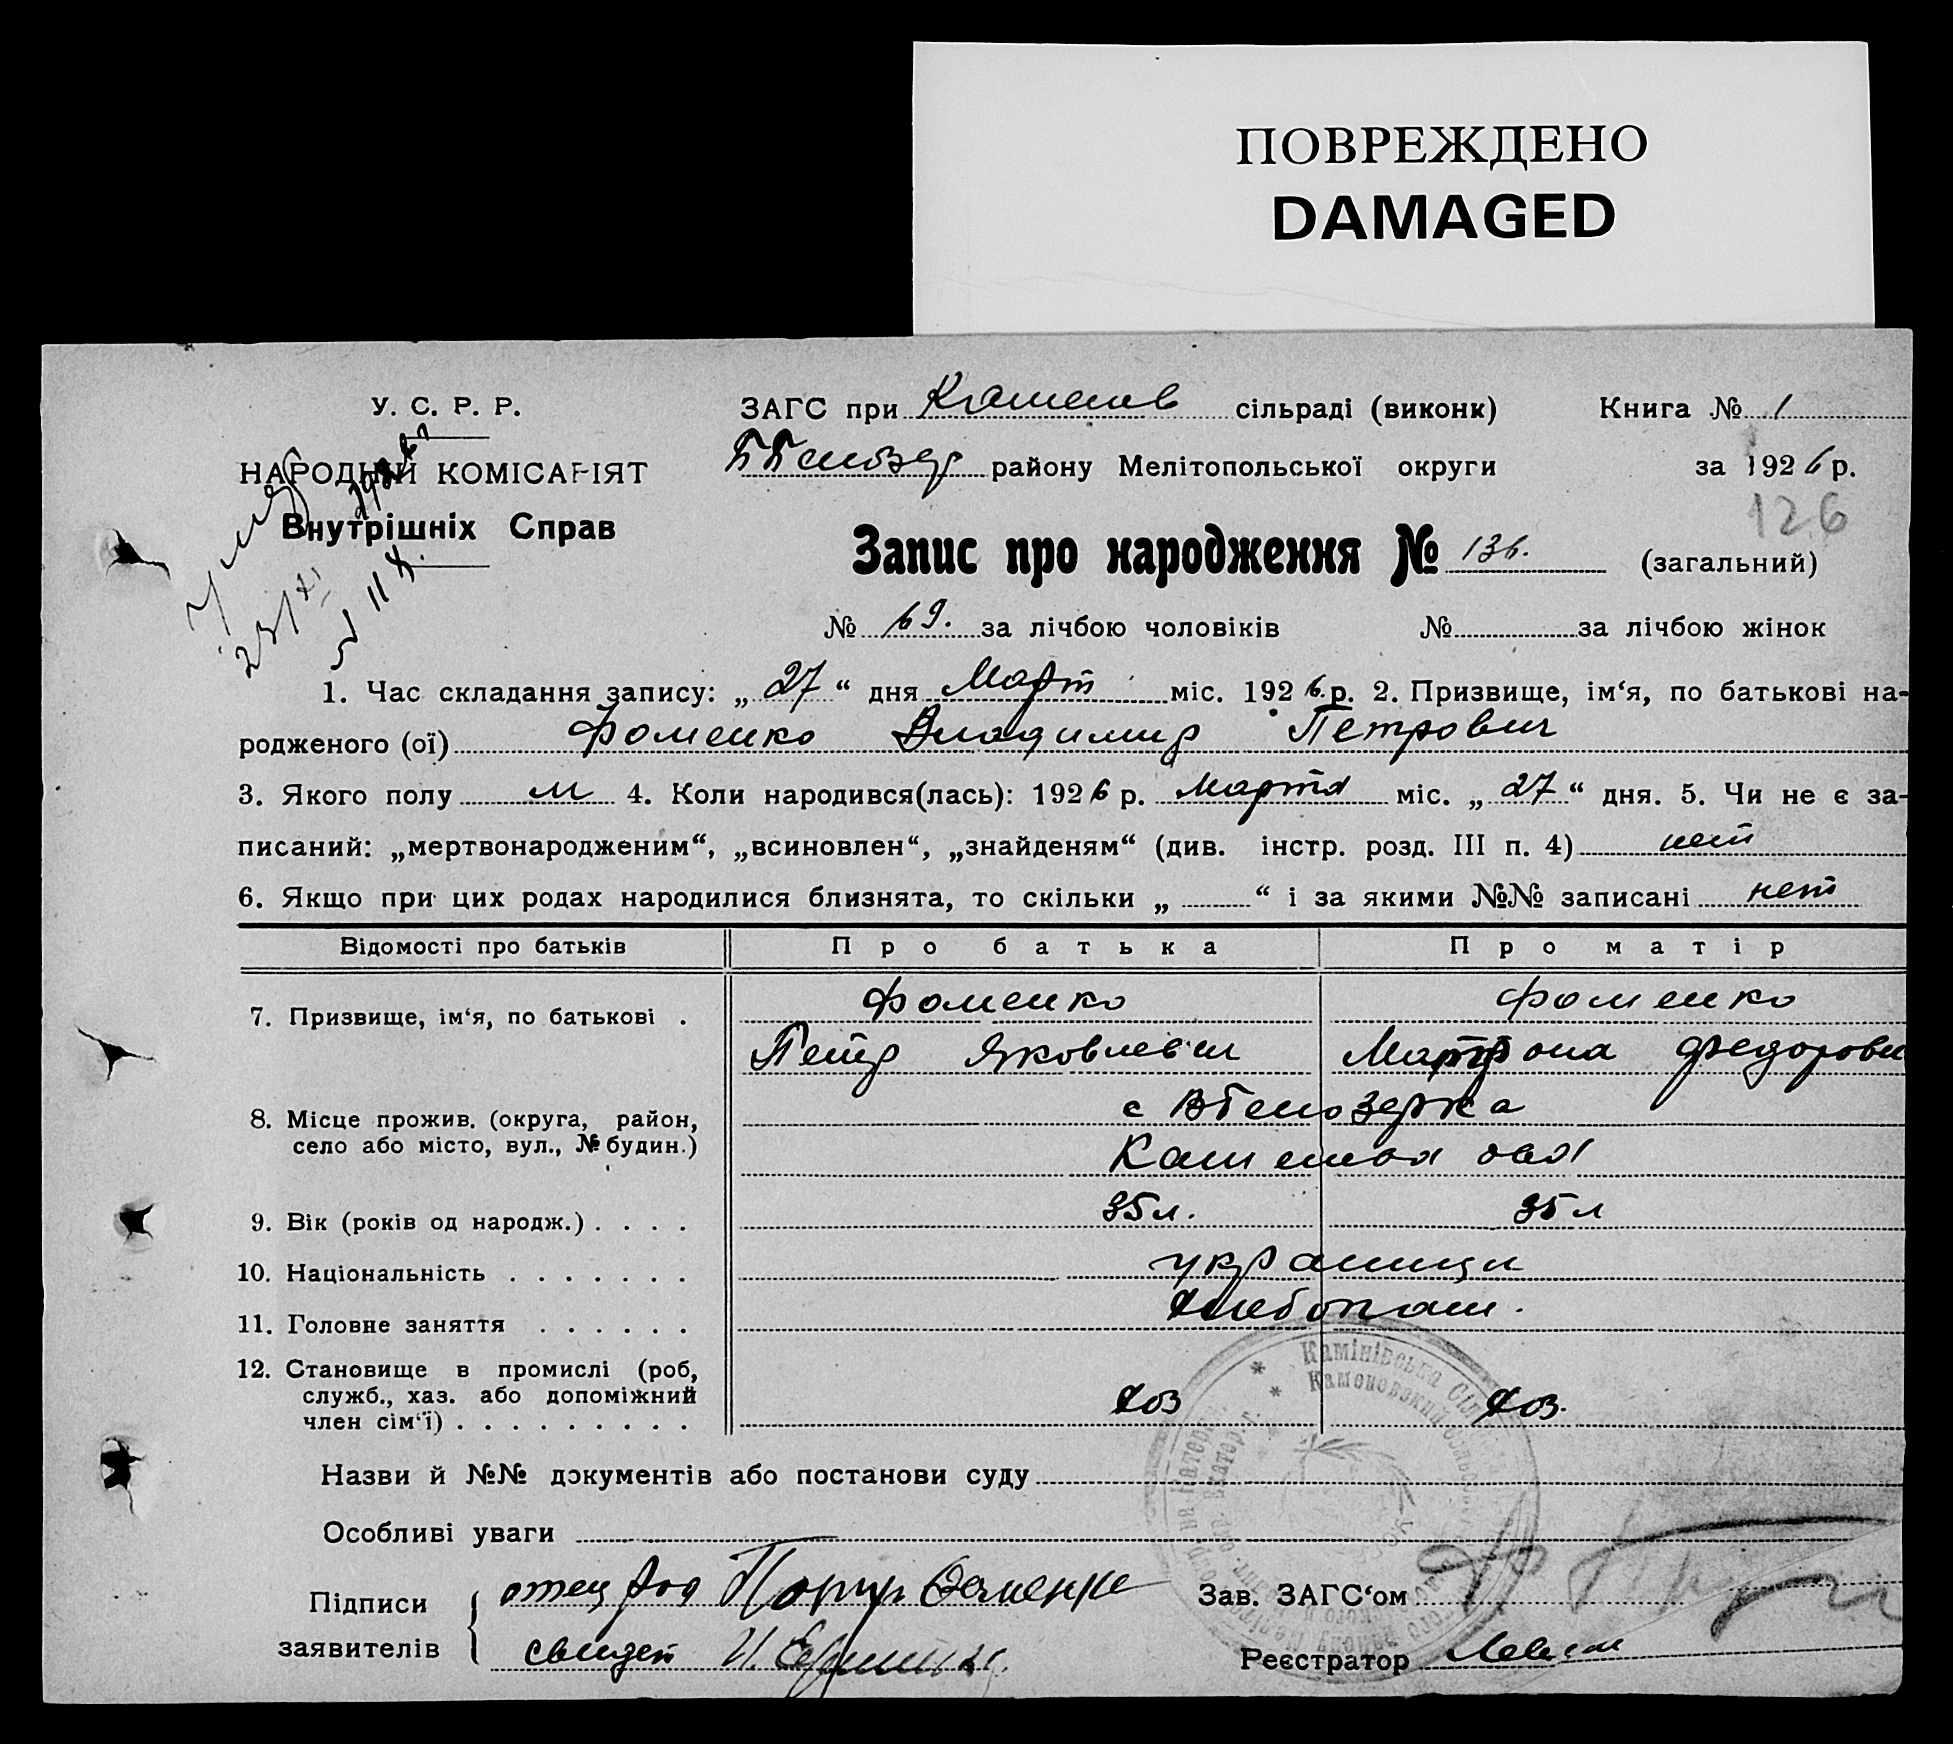 ПОВРЕЖДЕНО
DAMAGED
У. С. Р. Р.
НАРОДНИЙ КОМІСАРІЯТ
Внутрішніх Справ
ЗАГС при сільраді (виконк) Книга № 1
району Мелітопольської округи за 1926 р.
126
Запис про народження № 136. (загальний)
№ 69. за лічбою чоловіків № за лічбою жінок
1. Час складання запису: „27“ дня Март міс. 1926 р. 2. Призвище, ім‘я, по батькові на-
родженого (ої) Фоменко Владимир Петрович
3. Якого полу м 4. Коли народився(лась): 1926 р. Марта міс. „27“ дня. 5. Чи не є за-
писаний: „мертвонародженим“, „всиновлен“, „знайденям“ (див. інстр. розд. III п. 4) нет
6. Якщо при цих родах народилися близнята, то скільки „ “ і за якими №№ записані нет
Відомості про батьків Про батька Про матір
7. Призвище, ім‘я, по батькові . Фоменко Фоменко
Петр Яковлевич Федоровн
8. Місце прожив. (округа, район, с
село або місто, вул., № будин.)
9. Вік (років од народж.) . . . . 35 л. 35 л
10. Національність . . . . . . . украинцы
11. Головне заняття . . . . . . хлебопаш.
12. Становище в промислі (роб,
служб., хаз. або допоміжний
член сім‘ї) . . . . . . . . . хоз хоз.
Назви й №№ документів або постанови суду
Особливі уваги
Підписи отец Фоменко Зав. ЗАГС‘ом
заявителів свидет И. Реєстратор